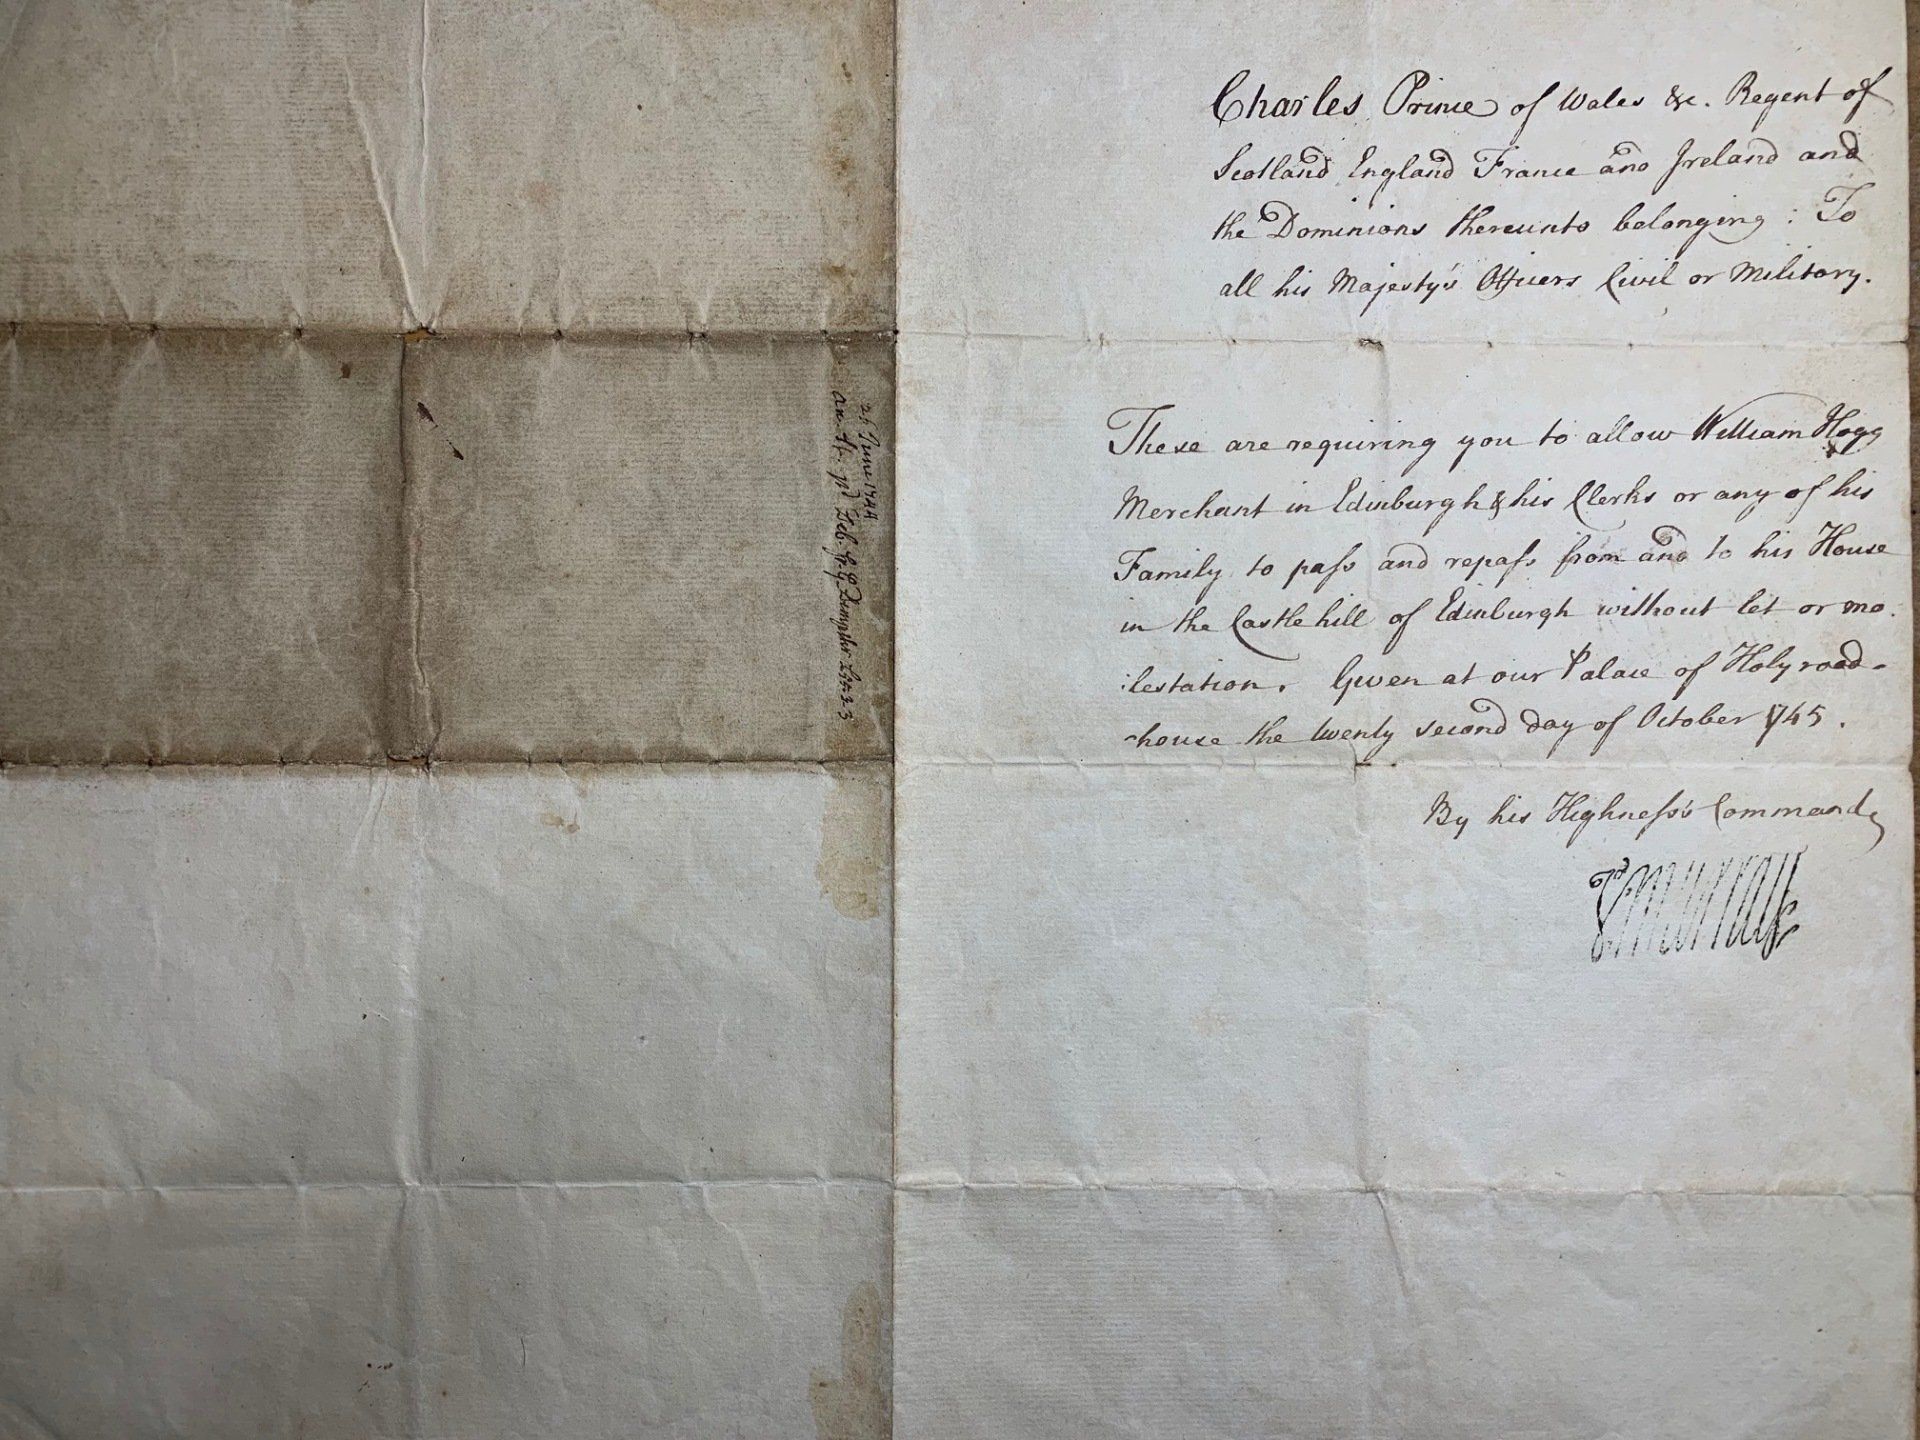 Charles Prince of Wales &c. Regent of
Scotland England France and Ireland and
the Dominions thereunto belonging : To
all his Majesty's Officers Civil or Military.
These are requiring you to allow William Hogg
Merchant in Edinburgh & his Clerks or any of his
Family to pass and repass from and to his House
in the Castle hill of Edinburgh without let or mo
:lestation. Given at our Palace of Holyrood-
-house the twenty second day of October 1745.
By his Highness's Command
Jo Murray
June 1744
Feb. Dempster